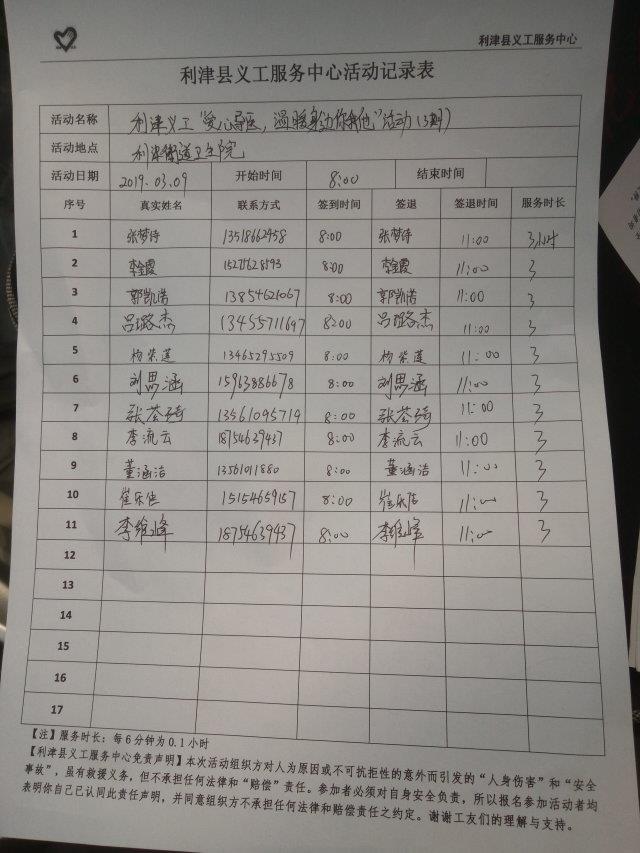 利津县义工服务中心
利津县义工服务中心活动记录表
活动名称 利津义工“爱心导医,温暖身边你我他”活动(3期)
活动地点 利津街道卫生院
活动日期 2019.03.09 开始时间 8:00 结束时间
序号 真实姓名 联系方式 签到时间 签退 签退时间 服务时长
1 张梦诗 13518662958 8:00 张梦诗 11:00 3小时
2 李金霞 8:00 李金霞 11:00 3
3 郭凯浩 13854621067 8:00 郭凯浩 11:00 3
4 吕璐杰 13455711697 8:00 吕璐杰 11:00 3
5 杨荣莲 13465295509 8:00 杨荣莲 11:00 3
6 刘思涵 15963886678 8:00 刘思涵 11:00 3
7 张荟琦 13561095719 8:00 张荟琦 11:00 3
8 李流云 18754639437 8:00 李流云 11:00 3
9 董涵洁 13561011880 8:00 董涵洁 11:00 3
10 崔乐佳 15154659157 8:00 崔乐佳 11:00 3
11 李维峰 18754639437 8:00 李维峰 11:00 3
12
13
14
15
16
17
【注】服务时长:每6分钟为0.1小时
【利津县义工服务中心免责声明】本次活动组织方对人为原因或不可抗拒性的意外而引发的“人身伤害”和“安全
事故”,虽有救援义务,但不承担任何法律和“赔偿”责任。参加者必须对自身安全负责,所以报名参加活动者均
表明你自己已认同此责任声明,并同意组织方不承担任何法律和赔偿责任之约定。谢谢工友们的理解与支持。